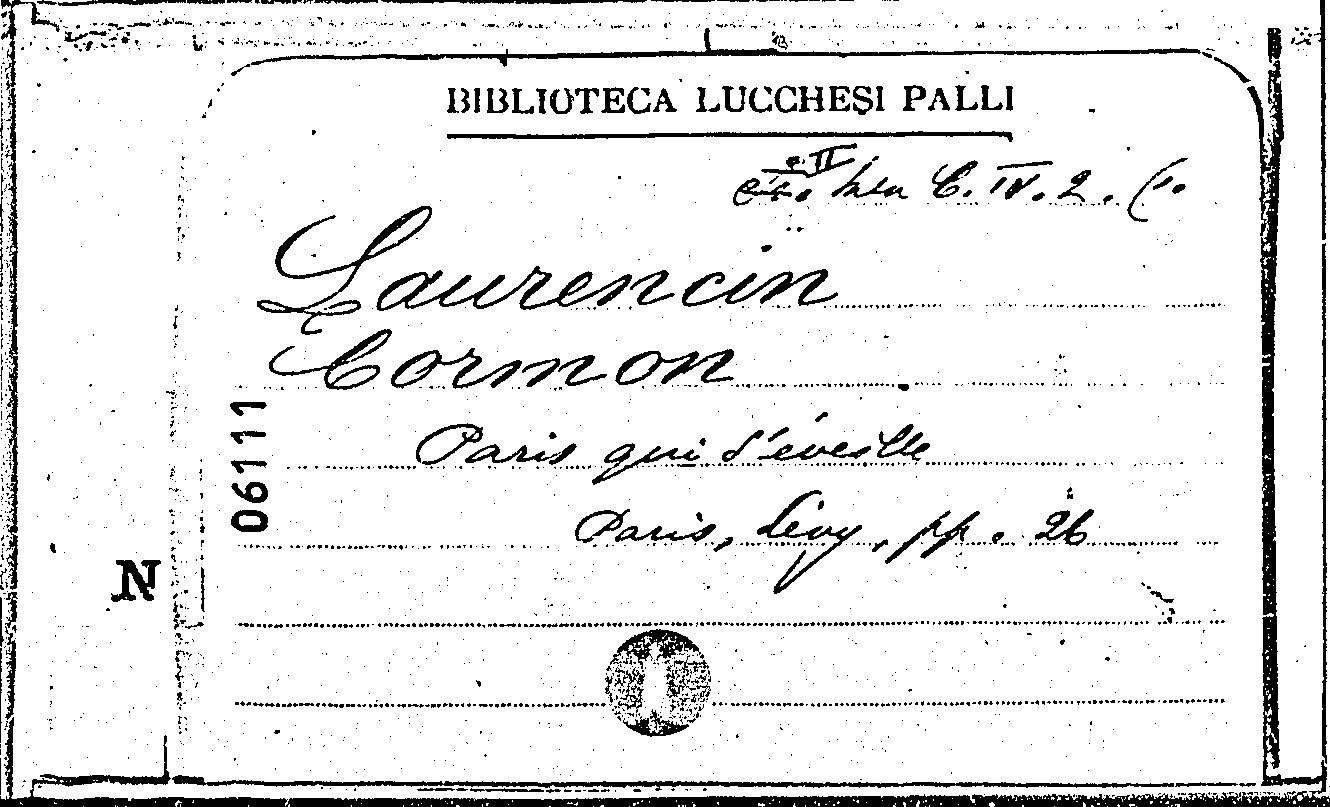 BIBLIOTECA LUCCHESI PALLI
C. IV. 2. (1.
Laurencin
Cormon
Paris qui s'éveille
Paris, Lévy, pp. 26
06111
N